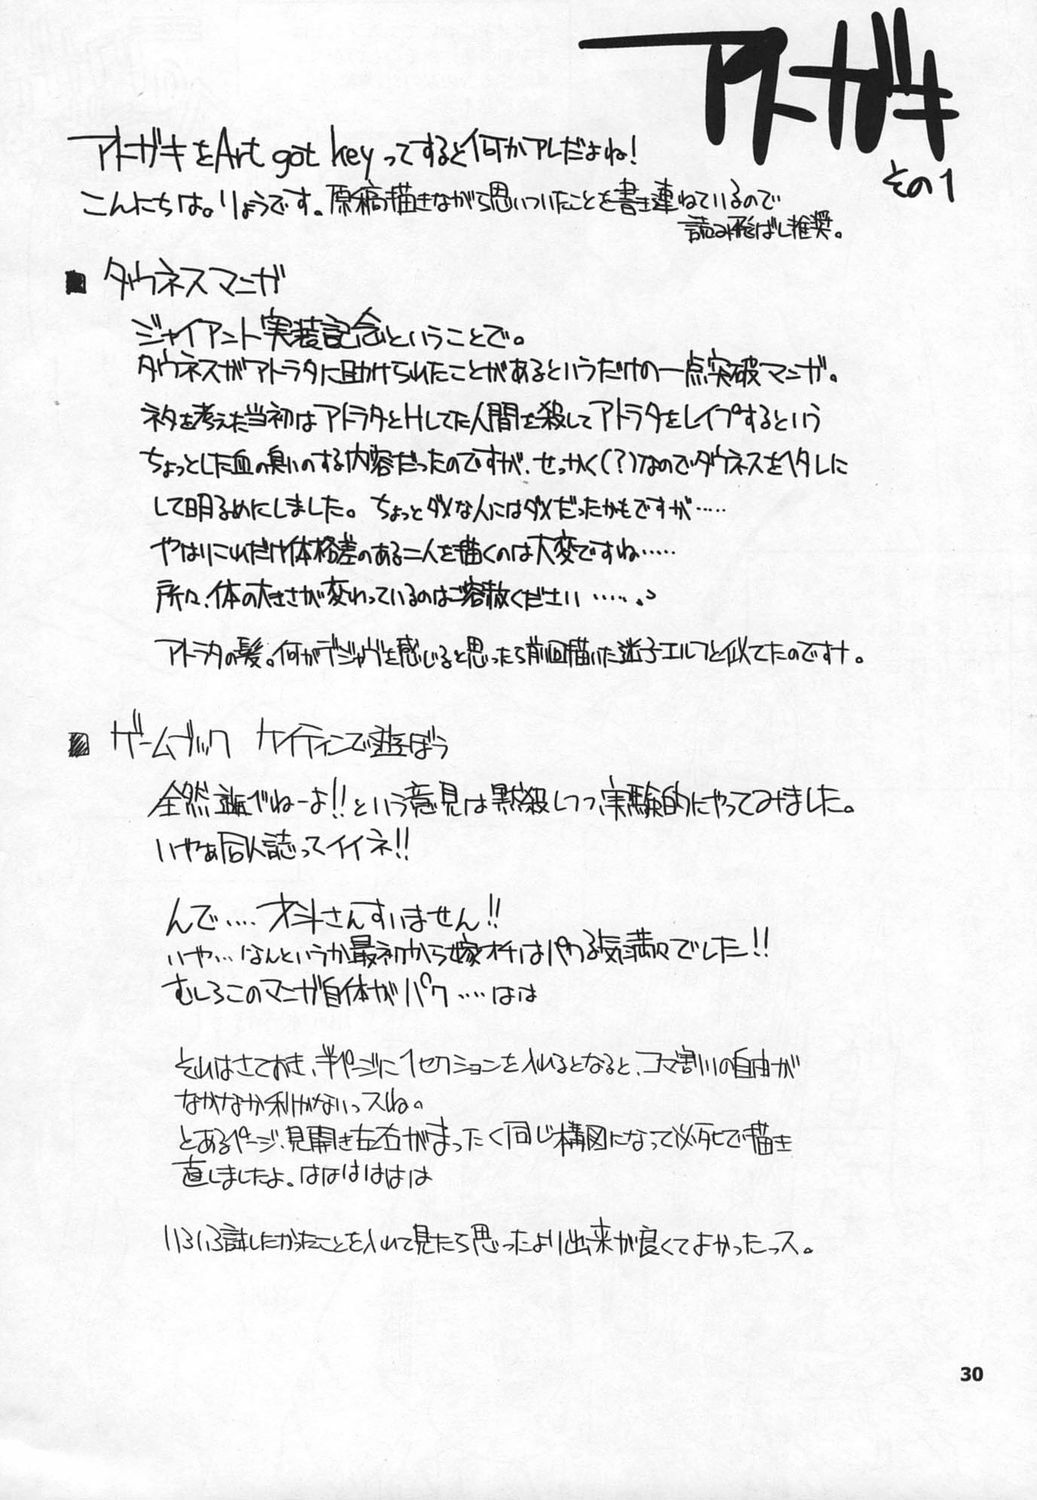 アトガキ
その1
アトガキをArt got keyってすると何かアレだよね!
こんにちは。りょうです。原稿描きながら思いついたことを書き連ねているので
読み飛ばし推奨。
■ ダウネスマンガ
ジャイアント実装記念ということで。
ダウネスがアトラタに助けられたことがあるというだけの一点突破マンガ。
ネタを考えた当初はアトラタとHしてた人間を殺してアトラタをレイプするという
ちょっとした血の臭いのする内容だったのですが、せっかく(?)なのでダウネスをヘタレに
して明るめにしました。ちょっとダメな人にはダメだったかもですが……
やはりこれだけ体格差のある二人を描くのは大変ですね……
所々、体の大きさが変わっているのはご容赦ください……。
アトラタの髪。何かデジャヴを感じると思ったら前回描いた迷子エルフと似てたのですナ。
■ ゲームブック ケイティンで遊ぼう
全然遊べねーよ!!という意見は黙殺しつつ実験的にやってみました。
いやぁ同人誌ってイイネ!!
んで…… 才斗さんすいません!!
いや… なんというか最初から嫁オチはパクる気満々でした!!
むしろこのマンガ自体がパク…… はは
それはさておき、半ページに1セクションを入れるとなると、コマ割りの自由が
なかなか利かないっスね。
とあるページ、見開き左右がまったく同じ構図になって必死で描き
直しましたよ。はははははは
いろいろ試したかったことを入れて見たら思ったより出来が良くてよかったっス。
30